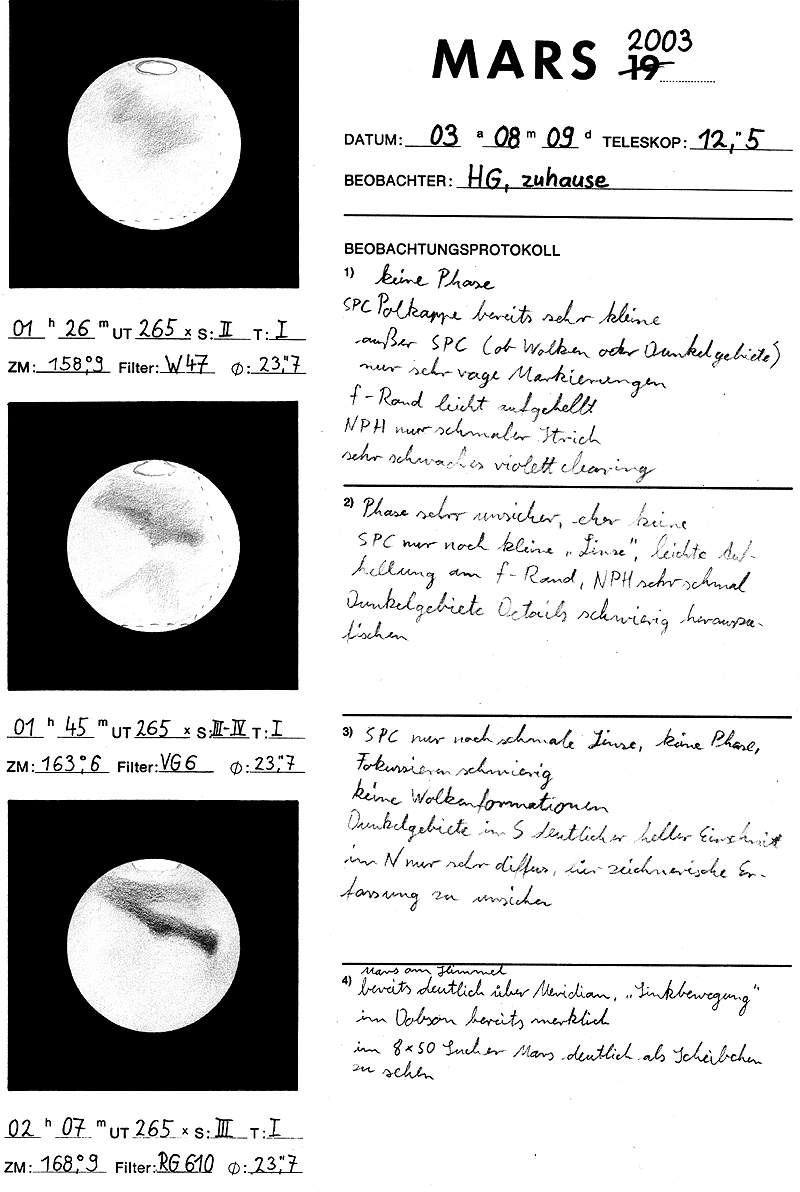 MARS 19 2003
DATUM: 03 a 08 m 09 d TELESKOP: 12,"5
BEOBACHTER: HG, zuhause
BEOBACHTUNGSPROTOKOLL
1) keine Phase
SPC Polkappe bereits sehr kleine
außer SPC (ob Wolken oder Dunkelgebiete)
nur sehr vage Markierungen
f-Rand leicht aufgehellt
NPH nur schmaler Strich
sehr schwaches violett clearing
01 h 26 m UT 265 x S: II T: I
ZM: 158°9 Filter: W47 Ø: 23"7
2) Phase sehr unsicher, eher keine
SPC nur noch kleine „Linse", leichte Auf-
hellung am f-Rand, NPH sehr schmal
Dunkelgebiete Details schwierig herauszu-
fischen
01 h 45 m UT 265 x S: III-IV T: I
ZM: 163°6 Filter: VG6 Ø: 23"7
3) SPC nur noch schmale Linse, keine Phase,
Fokussieren schwierig
keine Wolkenformationen
Dunkelgebiete im S deutlicher heller Einschnitt
im N nur sehr diffus, für zeichnerische Er-
fassung zu unsicher
02 h 07 m UT 265 x S: III T: I
ZM: 168°9 Filter: RG610 Ø: 23"7
4) Mars am Himmel
bereits deutlich über Meridian, „Linkbewegung"
im Dobson bereits merklich
im 8x50 Sucher Mars deutlich als Scheibchen
zu sehen